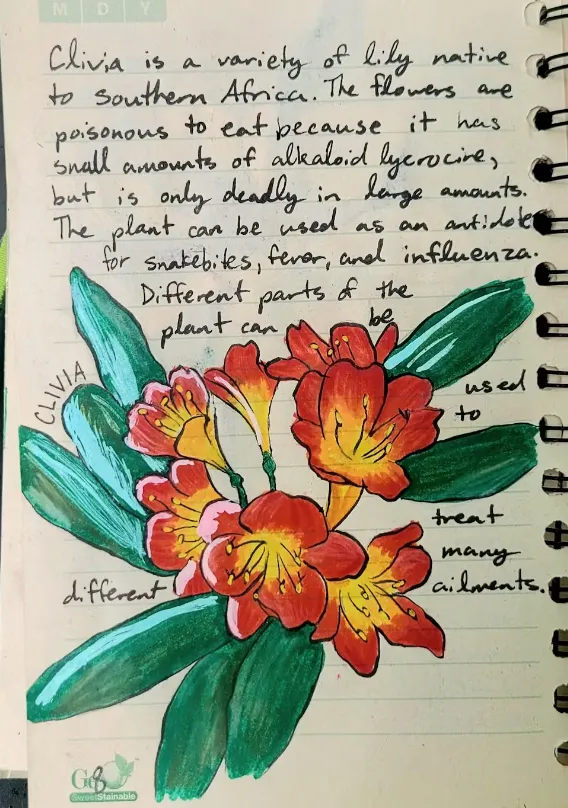 M D Y
Clivia is a variety of lily native
to southern Africa. The flowers are
poisonous to eat because it has
small amounts of alkaloid lycrocine,
but is only deadly in large amounts.
The plant can be used as an antidote
for snakebites, fever, and influenza.
Different parts of the
plant can be
used
to
treat
many
different ailments.
CLIVIA
SweetStainable